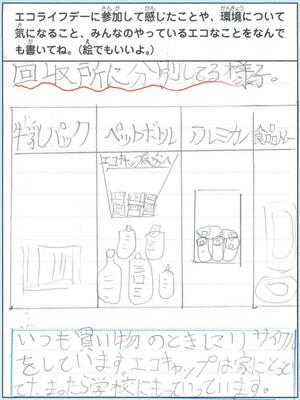 エコライフデーに参加して感じたことや、環境について
気になること、みんなのやっているエコなことをなんで
も書いてね。(絵でもいいよ。)
回収所に分別してる様子。
牛乳パック ペットボトル アルミカン 食品トレー
いつも買い物のときにリサイクル
をしています。エコキャップは家にとっといて
たまったら学校にもっていっています。